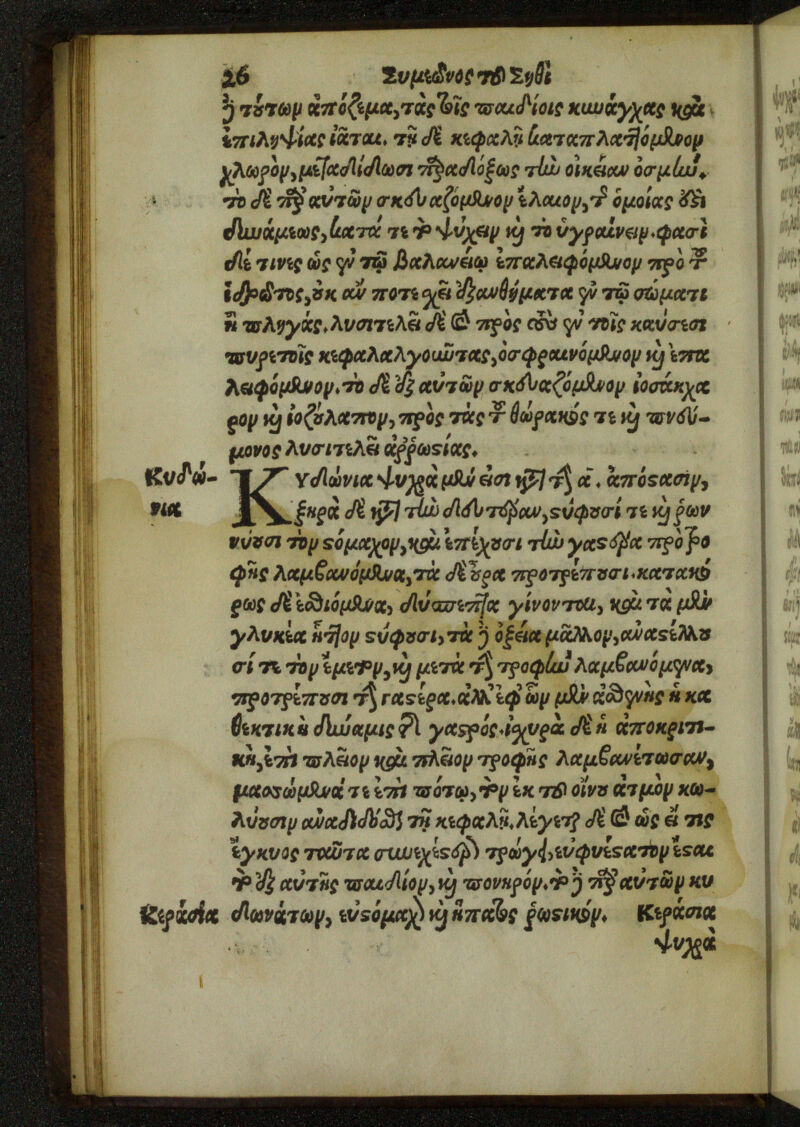 26 Συμεῶνος τοῦ Σήθι
ἢ τούτων ἀπόζεμα, τὰς τοῖς παιδίοις κυνάγχας καὶ
ἐπιληψίας ἰᾶται. τῇ δὲ κεφαλῇ καταπλαττόμενον
χλωρὸν, μεταδίδωσι παραδόξως τὴν οἰκείαν ὀσμήν.
τὸ δὲ παρ' αὐτῶν σκευαζόμενον ἔλαιον, τῆς ὁμοίας ἐστὶ
δυνάμεως, κατά τε τὸ ψύχειν καὶ τὸ ὑγραίνειν. φασὶ
δέ τινες ὡς ἐν τῷ βαλανείῳ ἐπαλειφόμενον πρὸ τοῦ
ἱδρῶτος, οὐκ ἄν ποτε σχῇ ἐξανθήματα ἐν τῷ σώματι
ἢ πληγάς. λυσιτελεῖ δὲ καὶ πρὸς τοὺς ἐν τοῖς καύσεσι
πυρετοῖς κεφαλαλγοῦντας, ὀσφραινόμενον καὶ ἐπα
λειφόμενον. τὸ δὲ ἐξ αὐτῶν σκευαζόμενον ἰοσάκχα
ρον καὶ ἰοζούλαπον, πρὸς τὰς τοῦ θώρακός τε καὶ πνεύ-
μονος λυσιτελεῖ ἀῤῥωστίας.
Κυδώ- ΚΥδώνια ψυχρὰ μέν εἰσι κατὰ τὴν α. ἀπόστασιν,
νια ξηρὰ δὲ κατὰ τὴν δευτέραν, στύφουσί τε καὶ ῥων
νύουσι τὸν στόμαχον, καὶ ἐπέχουσι τὴν γαστέρα πρὸ τρο
φῆς λαμβανόμενα, τὰ δὲ ὕστερα προτρέπουσι. κατακό
ρως δὲ ἐσθιόμενα, δύσπεπτα γίνονται, καὶ τὰ μὲν
γλυκέα ἧττον στύφουσι, τὰ δ' ὀξεῖα μᾶλλον, ἀναστέλλου
σί τε τὸν ἔμετον, καὶ μετὰ τὴν τροφὴν λαμβανόμενα,
προτρέπουσι τὴν γαστέρα. ἀλλ' ἐφ' ὧν μὲν ἀσθενὴς ἡ κα
θεκτικὴ δύναμις τῆς γαστρός. ἰσχυρὰ δὲ ἡ ἀποκριτι-
κὴ, ἐπὶ πλεῖον καὶ πλεῖον τροφῆς λαμβανέτωσαν,
μασσώμενά τε ἐπὶ πότῳ, τὸν ἐκ τοῦ οἴνου ἀτμὸν κω-
λύουσιν ἀναδίδοσθαι τῇ κεφαλῇ. λέγεται δὲ καὶ ὡς εἴ τις
ἔγκυος ταῦτα συνεχέστερον τρώγει, εὐφυέστατον ἔσται
τὸ ἐξ αὐτῆς παιδίον, καὶ πονηρόν. τὸ δ' παρ' αὐτῶν κυ
Κεράσια δωνάτων, εὐστόμαχον καὶ ἥπατος ῥωστικόν. Κεράσια
ψυχρὰ